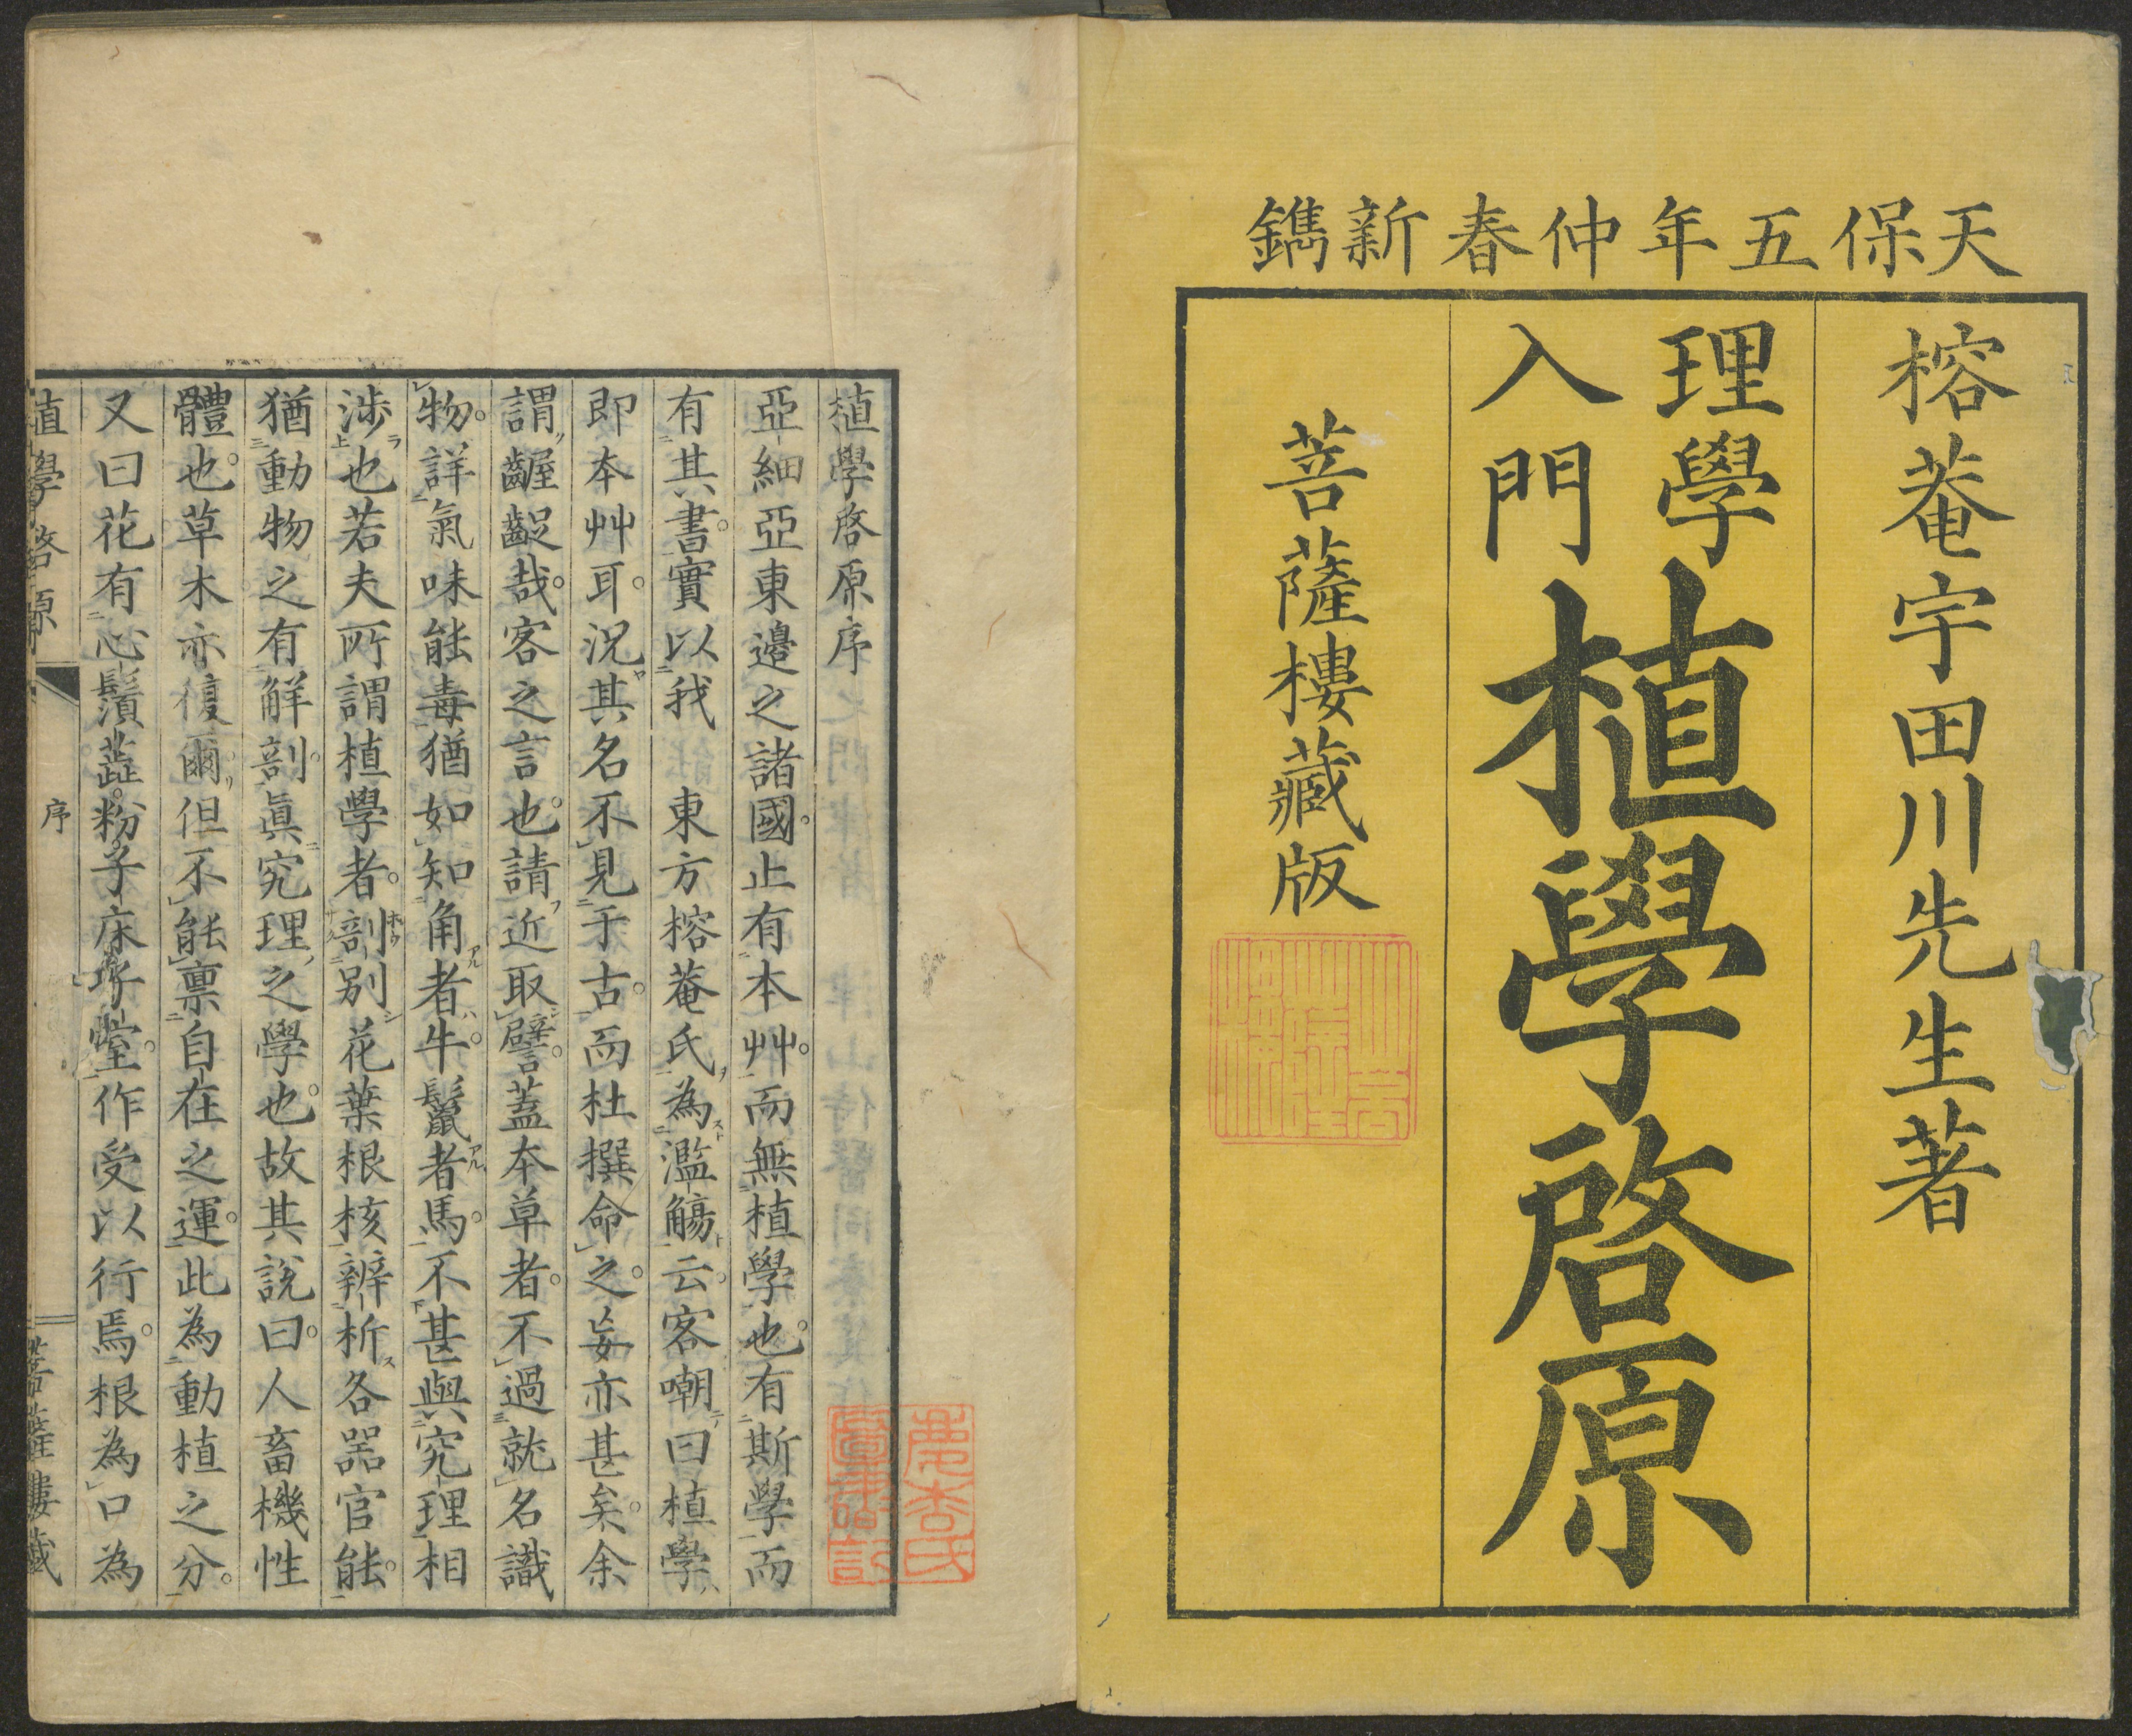 天保五年仲春新鐫
榕菴宇田川先生著
理學
入門
植學啓原
菩薩樓藏版
植學啓原序
亞細亞東邊之諸國。止有本艸。而無植學也。有斯學而
有其書。實以我 東方榕菴氏為濫觴云。客嘲曰植學
即本艸耳。況其名不見于古。而杜撰命之。妄亦甚矣。余
謂齷齪哉。客之言也。請近取譬。蓋本草者。不過就名識
物。詳氣味能毒。猶如知角者牛。鬣者馬。不甚與究理相
渉也若夫所謂植學者。剖別花葉根核辨析各器官能。
猶動物之有解剖。眞究理之學也。故其說曰。人畜機性
體也。草木亦復爾。但不能稟自在之運。此為動植之分。
又曰花有心鬚蘂。粉。子床。子室。作受以行焉。根為口為
植學啓原
序
菩薩樓藏